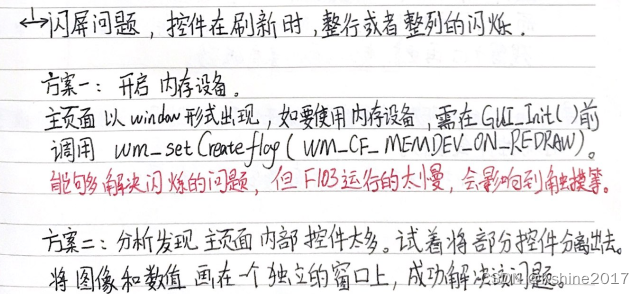 ↔闪屏问题，控件在刷新时，整行或者整列的闪烁．
方案一：开启 内存设备。
主页面 以 window 形式出现，如要使用内存设备，需在 GUI_Init( )前
调用 wm_setCreateflag ( WM_CF_MEMDEV_ON_REDRAW)。
能够多解决闪烁的问题，但 F103 运行的太慢，会影响到触摸等。
方案二：分析发现 主页面 内部 控件太多。试着将 部分控件分离出去。
将 图像和数值 画在一个 独立的窗口上，成功解决该问题